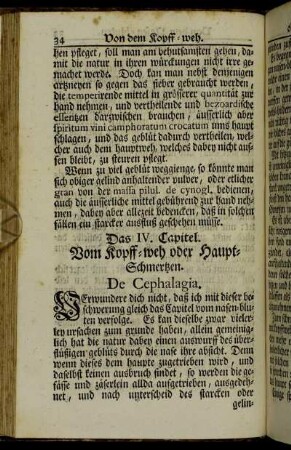 34 Von dem Kopff-weh.
hen pfleget, soll man am behutsamsten gehen, da-
mit die natur in ihren würckungen nicht irre ge-
macht werde. Doch kan man nebst denjenigen
artzneyen so gegen das fieber gebraucht werden,
die temperirende mittel in grösserer quantität zur
hand nehmen, und vertheilende und bezoardische
essentzen darzwischen brauchen, äusserlich aber
spiritum vini camphoratum crocatum ums haupt
schlagen, und das geblüt dadurch vertheilen, wel-
cher auch dem hauptweh, welches dabey nicht aus-
sen bleibt, zu steuren pflegt.
Wenn zu viel geblüt weggienge so könnte man
sich obiger gelind anhaltender pulver, oder etlicher
gran von der massa pilul. de cynogl. bedienen,
auch die äusserliche mittel gebührend zur hand neh-
men, dabey aber allezeit bedencken, daß in solchen
fällen ein starcker ausfluß geschehen müsse.
Das IV. Capitel.
Vom Kopff-weh oder Haupt-
Schmertzen.
De Cephalagia.
Verwundere dich nicht, daß ich mit dieser be-
schwerung gleich das Capitel vom nasen-blu-
ten verfolge. Es kan dieselbe zwar vieler-
ley ursachen zum grunde haben, allein gemeinig-
lich hat die natur dabey einen auswurff des über-
flüßigen geblüts durch die nase ihr absicht. Denn
wenn dieses dem haupte zugetrieben wird, und
daselbst keinen ausbruch findet, so werden die ge-
fässe und zäserlein allda ausgetrieben, ausgedeh-
net, und nach unterscheid des starcken oder
gelin-